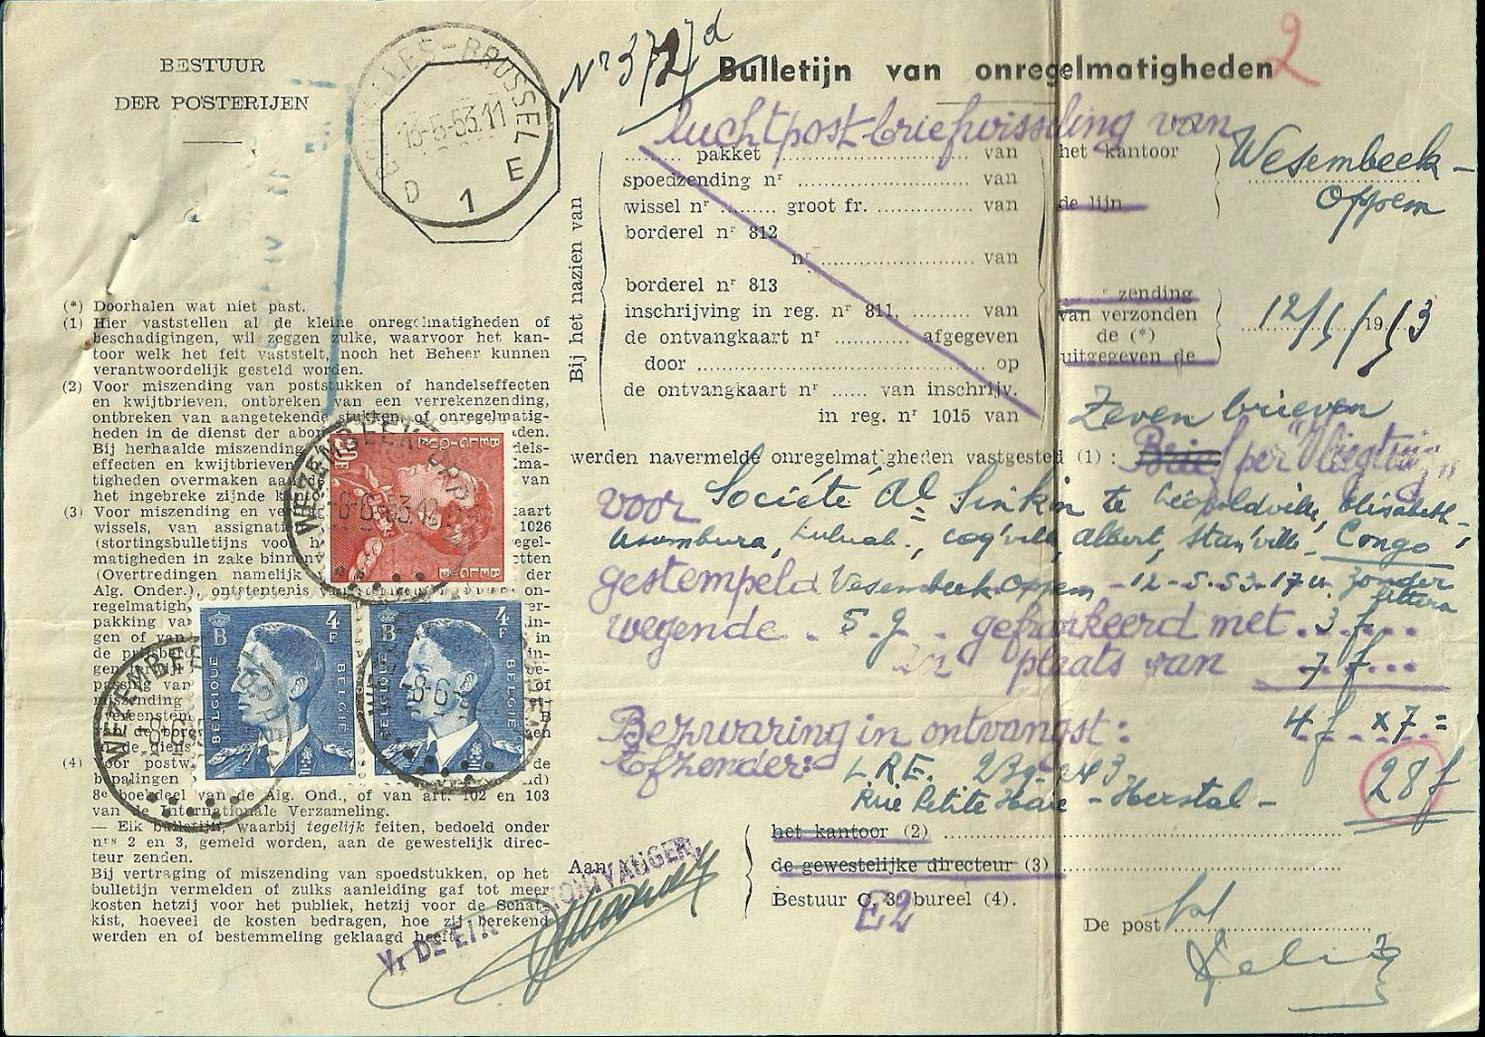 BESTUUR
DER POSTERIJEN
BRUXELLES-BRUSSEL
13-5-53.11
D 1 E
Nr 372/d
Bulletijn van onregelmatigheden
2
luchtpost-briefwisseling van
Bij het nazien van
pakket van
spoedzending nr van
wissel nr groot fr. van
borderel nr 812
nr van
borderel nr 813
inschrijving in reg. nr 811, van
de ontvangkaart nr afgegeven
door op
de ontvangkaart nr van inschrijv.
in reg. nr 1015 van
het kantoor
de lijn
Wesembeek-
Oppem
zending
van verzonden
de (*)
uitgegeven de
12/5/1953
Zeven brieven
werden navermelde onregelmatigheden vastgested (1) : Brief per Vliegtuig
voor Société Al Sinkin te Léopoldville, Elisabeth-,
Usumbura, Luluab., Coq'ville, Albert, Stan'ville - Congo
gestempeld Wesembeek-Oppem - 12-5-53-17 u. zonder
littera
wegende 5 g gefrankeerd met 3 f
in plaats van 7 f
4 f x 7 =
28 f
Bezwaring in ontvangst:
Afzender: L.R.E. 239-243
Rue Petite Foxhe - Herstal -
Aan
het kantoor (2)
de gewestelijke directeur (3)
Bestuur C. 3e bureel (4).
E2
De post
Vr DE E.A. ONTVANGER,
(*) Doorhalen wat niet past.
(1) Hier vaststellen al de kleine onregelmatigheden of
beschadigingen, wil zeggen zulke, waarvoor het kan-
toor welk het feit vaststelt, noch het Beheer kunnen
verantwoordelijk gesteld worden.
(2) Voor miszending van poststukken of handelseffecten
en kwijtbrieven, ontbreken van een verrekenzending,
ontbreken van aangetekende stukken of onregelmatig-
heden in de dienst der abon den.
Bij herhaalde miszending dels-
effecten en kwijtbrieven ma-
tigheden overmaken aan van
het ingebreke zijnde k
(3) Voor miszending en ve kaart
wissels, van assignatie 1026
(stortingsbulletijns voor h egel-
matigheden in zake binnen etten
(Overtredingen namelijk der
Alg. Onder.), ontstentenis on-
regelmatigh er-
pakking va in-
gen of van in
de prijsbe in-
passing van be-
miszending of
en
de diens
(4) Voor postw de
bepalingen nd)
8e boekdeel van de Alg. Ond., of van art. 102 en 103
van de Internationale Verzameling.
— Elk bulletijn, waarbij tegelijk feiten, bedoeld onder
nrs 2 en 3, gemeld worden, aan de gewestelijk direc-
teur zenden.
Bij vertraging of miszending van spoedstukken, op het
bulletijn vermelden of zulks aanleiding gaf tot meer
kosten hetzij voor het publiek, hetzij voor de Schat-
kist, hoeveel de kosten bedragen, hoe zij berekend
werden en of bestemmeling geklaagd heeft.
WEZEMBEEK-OPPEM
8-6-53.18
20 F
BELGIE-BELGIQUE
B 4 F
BELGIQUE BELGIE
B 4 F
BELGIQUE BELGIE